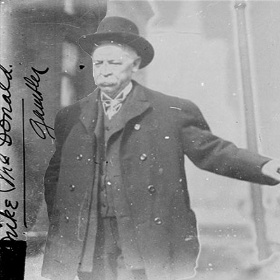 Mike McDonald.
Gambler